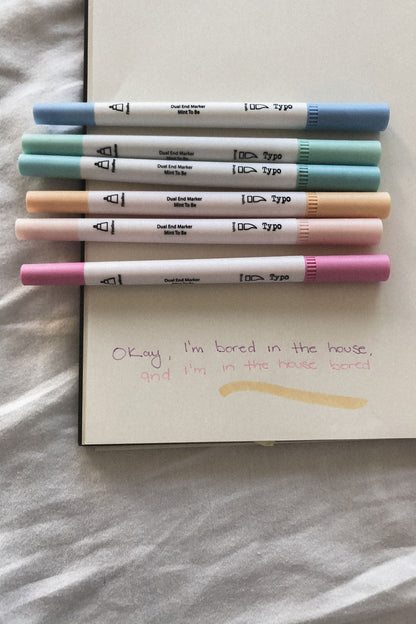 Dual End Marker
Mint To Be
Typo
Dual End Marker
Mint To Be
Typo
Dual End Marker
Mint To Be
Typo
Dual End Marker
Mint To Be
Typo
Dual End Marker
Mint To Be
Typo
Dual End Marker
Mint To Be
Typo
Okay, I'm bored in the house,
and i'm in the house bored